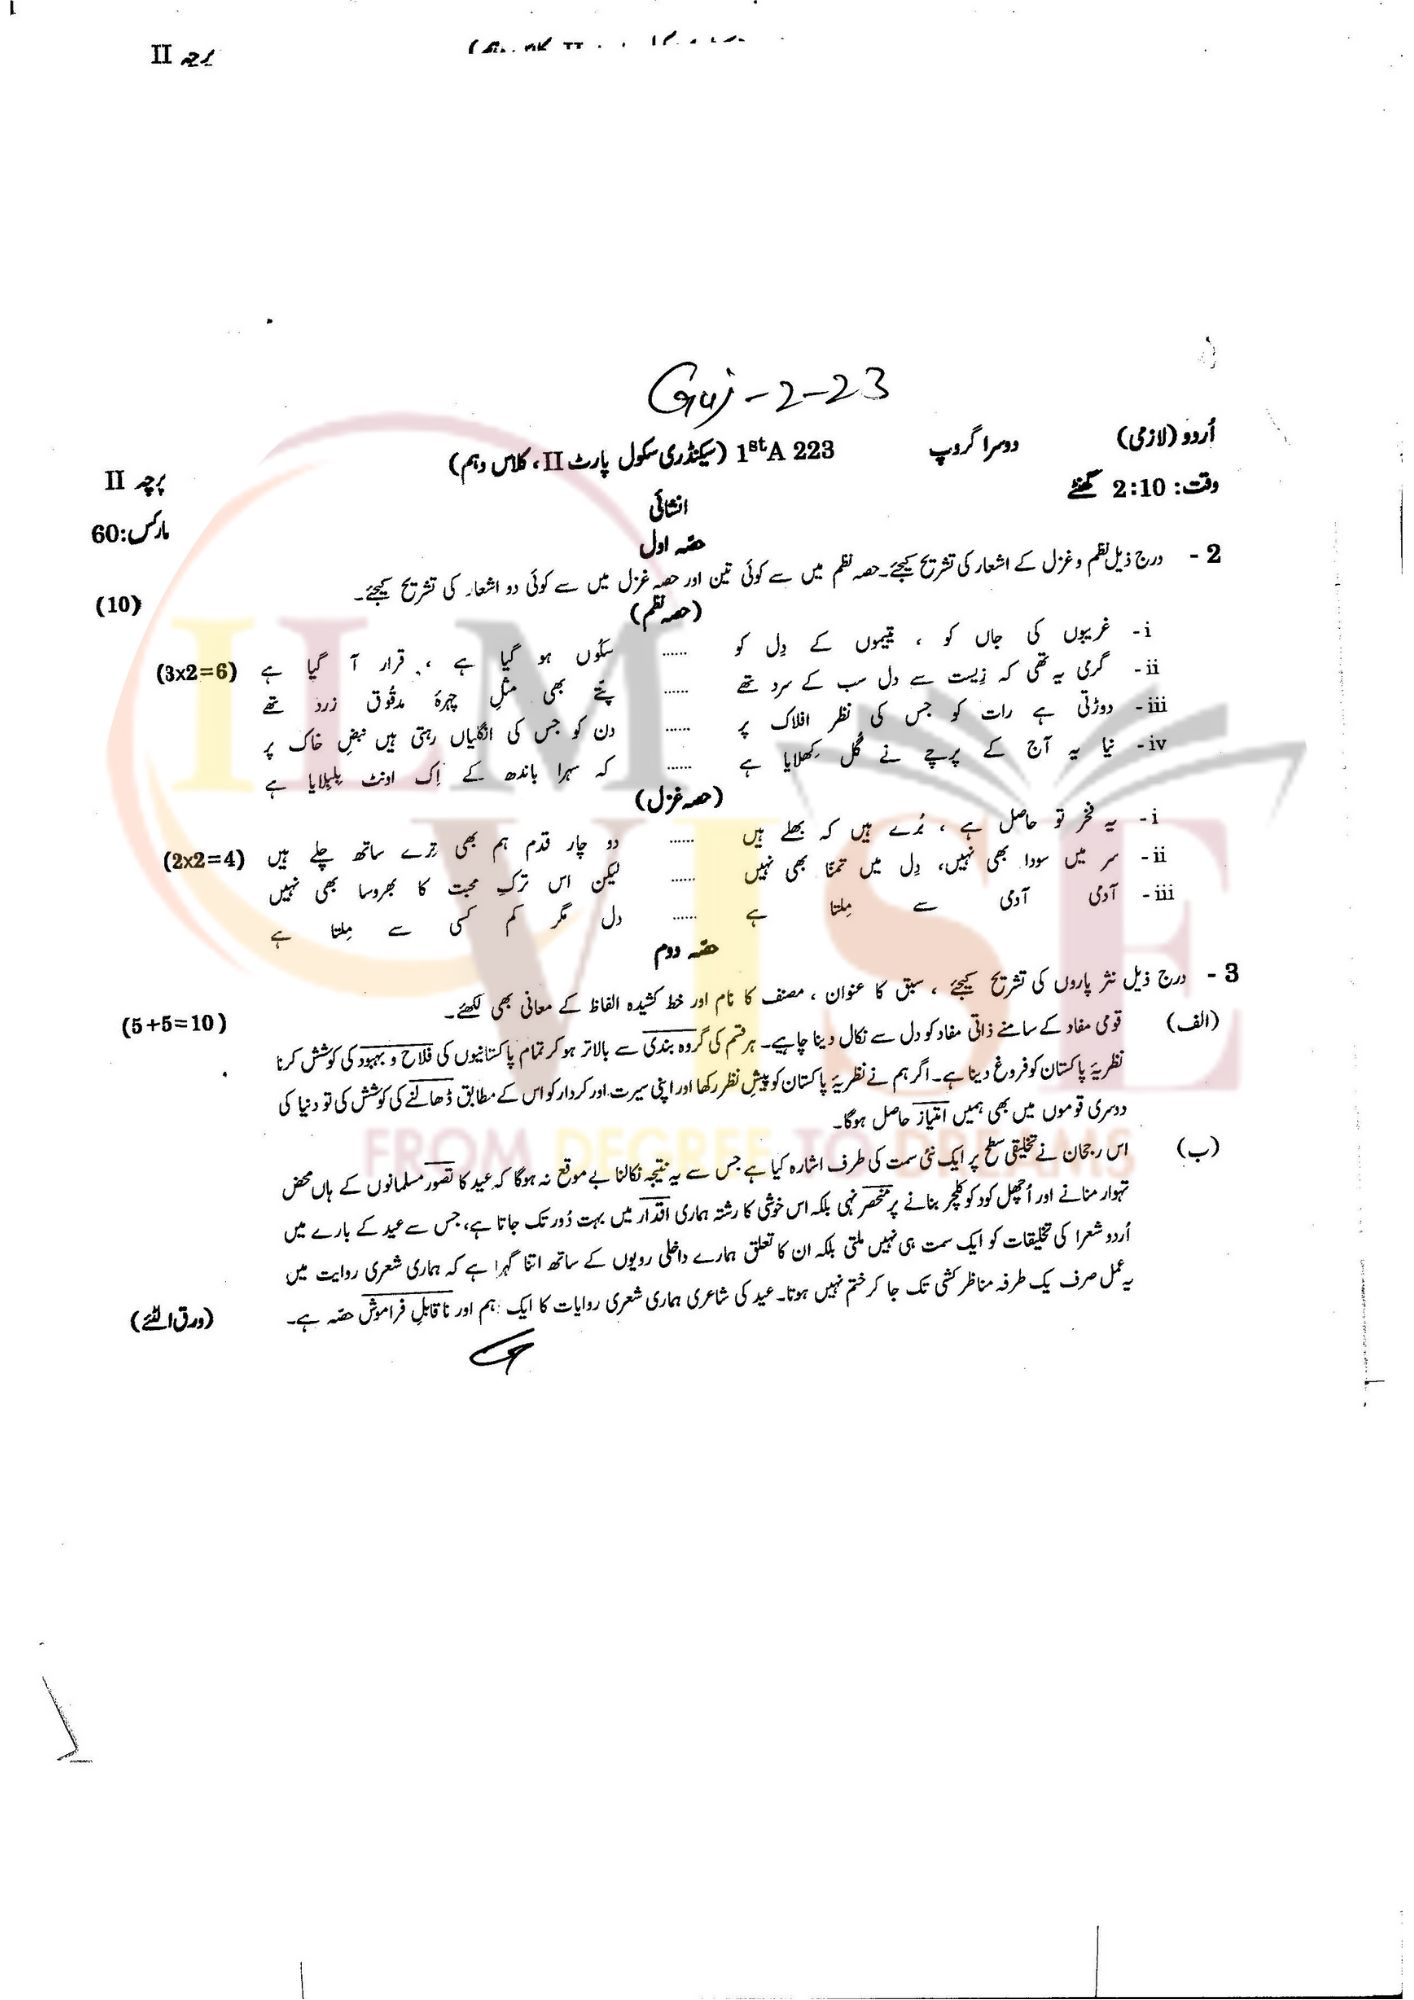 پرچہ II
Guj-2-23
اُردو (لازمی) دوسرا گروپ 1stA 223 (سیکنڈری سکول پارٹ II، کلاس دہم) پرچہ II
وقت: 2:10 گھنٹے انشائی مارکس: 60
حصّہ اول
2 - درج ذیل نظم و غزل کے اشعار کی تشریح کیجئے۔ حصہ نظم میں سے کوئی تین اور حصہ غزل میں سے کوئی دو اشعار کی تشریح کیجئے۔ (10)
(حصہ نظم)
i- غریبوں کی جاں کو ، یتیموں کے دِل کو ...... سکُوں ہو گیا ہے ، قرار آ گیا ہے (3x2=6)
ii- گرمی یہ تھی کہ زِیست سے دل سب کے سرد تھے ...... پتّے بھی مثلِ چہرۂ مدقُوق زرد تھے
iii- دوڑتی ہے رات کو جس کی نظر افلاک پر ...... دن کو جس کی انگلیاں رہتی ہیں نبضِ خاک پر
iv- نیا یہ آج کے پرچے نے گُل کِھلایا ہے ...... کہ سہرا باندھ کے اِک اونٹ بِلبلایا ہے
(حصہ غزل)
i- یہ فخر تو حاصل ہے ، بُرے ہیں کہ بھلے ہیں ...... دو چار قدم ہم بھی تِرے ساتھ چلے ہیں (2x2=4)
ii- سر میں سودا بھی نہیں، دِل میں تمنّا بھی نہیں ...... لیکن اس ترکِ محبت کا بھروسا بھی نہیں
iii- آدمی آدمی سے مِلتا ہے ...... دل مگر کم کسی سے مِلتا ہے
حصّہ دوم
3 - درج ذیل نثر پاروں کی تشریح کیجئے ، سبق کا عنوان ، مصنف کا نام اور خط کشیدہ الفاظ کے معانی بھی لکھئے۔ (5+5=10)
(الف) قومی مفاد کے سامنے ذاتی مفاد کو دل سے نکال دینا چاہیے۔ ہر قسم کی گروہ بندی سے بالاتر ہو کر تمام پاکستانیوں کی فلاح و بہبود کی کوشش کرنا
نظریۂ پاکستان کو فروغ دینا ہے۔ اگر ہم نے نظریۂ پاکستان کو پیشِ نظر رکھا اور اپنی سیرت اور کردار کو اس کے مطابق ڈھالنے کی کوشش کی تو دنیا کی
دوسری قوموں میں بھی ہمیں امتیاز حاصل ہوگا۔
(ب) اس رجحان نے تخلیقی سطح پر ایک نئی سمت کی طرف اشارہ کیا ہے جس سے یہ نتیجہ نکالنا بے موقع نہ ہوگا کہ عید کا تصوّر مسلمانوں کے ہاں محض
تہوار منانے اور اُچھل کود کو کلچر بنانے پر منحصر نہیں بلکہ اس خوشی کا رشتہ ہماری اقدار میں بہت دُور تک جاتا ہے، جس سے عید کے بارے میں
اُردو شعرا کی تخلیقات کو ایک سمت ہی نہیں ملتی بلکہ ان کا تعلق ہمارے داخلی رویوں کے ساتھ اتنا گہرا ہے کہ ہماری شعری روایت میں
یہ عمل صرف یک طرفہ مناظر کشی تک جا کر ختم نہیں ہوتا۔ عید کی شاعری ہماری شعری روایات کا ایک اہم اور ناقابلِ فراموش حصّہ ہے۔
(ورق الٹئے)
ILM
VISE
FROM DEGREE TO DREAMS